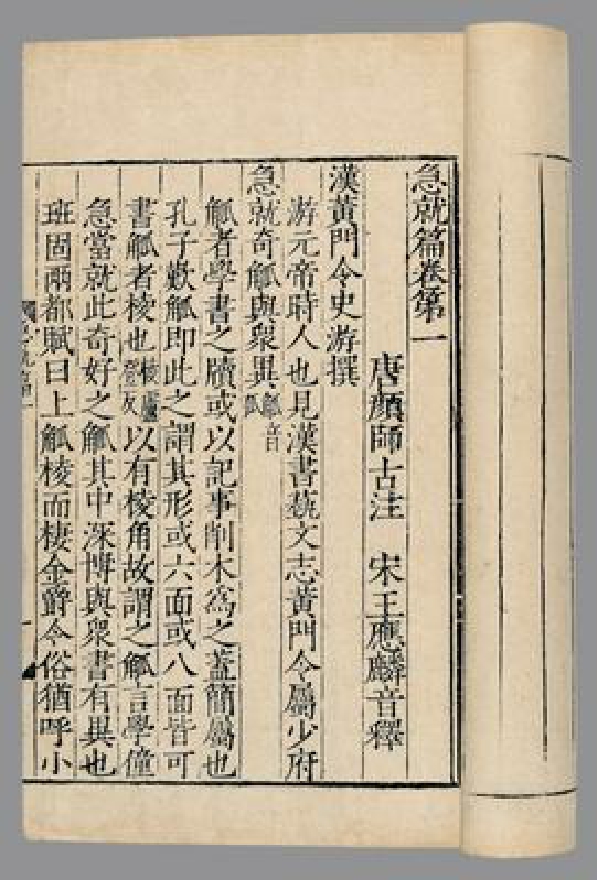 急就篇卷第一
唐顔師古注　宋王應麟音釋
漢黃門令史游撰
游元帝時人也見漢書藝文志黃門令屬少府
急就奇觚與衆異觚音孤
觚者學書之牘或以記事削木爲之葢簡屬也
孔子歎觚即此之謂其形或六面或八面皆可
書觚者棱也棱盧登又以有棱角故謂之觚言學僮
急當就此奇好之觚其中深博與衆書有異也
班固兩都賦曰上觚棱而棲金爵今俗猶呼小